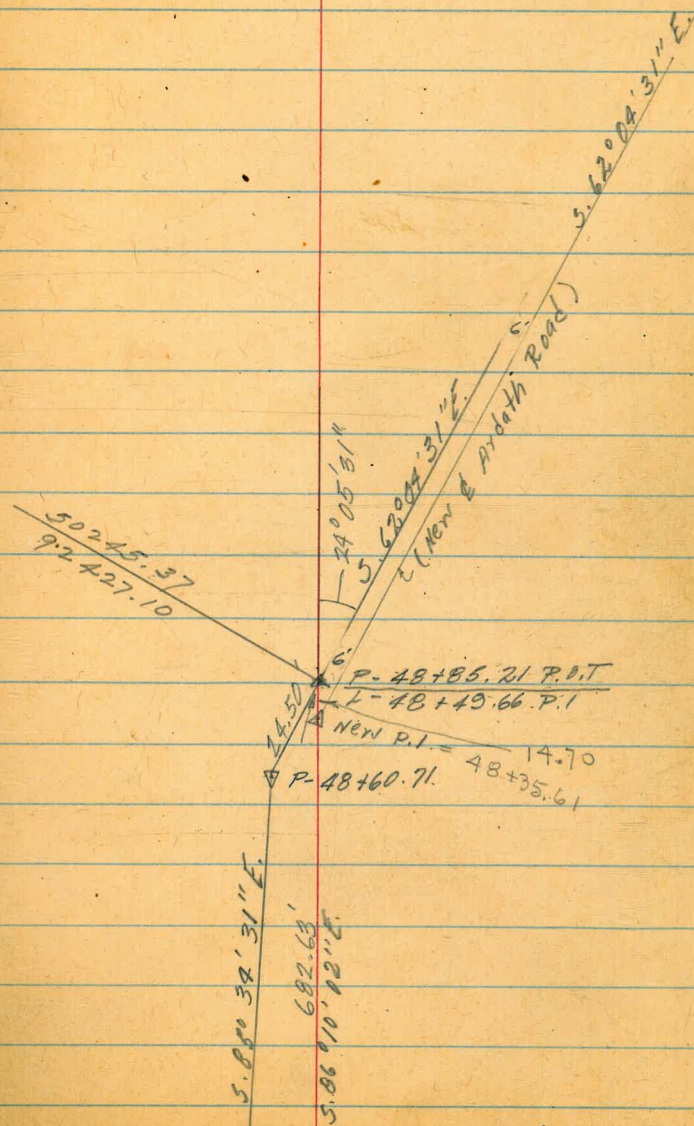 S. 62° 04' 31" E.
6'
(New ℄ Ardath Road)
S. 62° 04' 31" E.
24° 05' 31"
50245.37
92427.10
6'
P- 48+85.21 P.O.T
L- 48+49.66 P.I
24.50'
New P.I. = 48+35.61
14.70
P- 48+60.71
S. 88° 34' 31" E.
692.63'
S. 86° 10' 02" E.